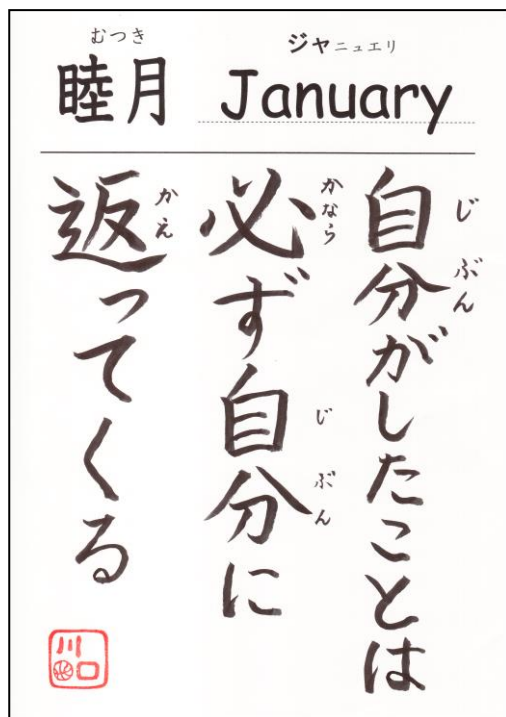 むつき
睦月
ジャニュエリ
January
じぶん
自分がしたことは
かなら じぶん
必ず自分に
かえ
返ってくる
川口